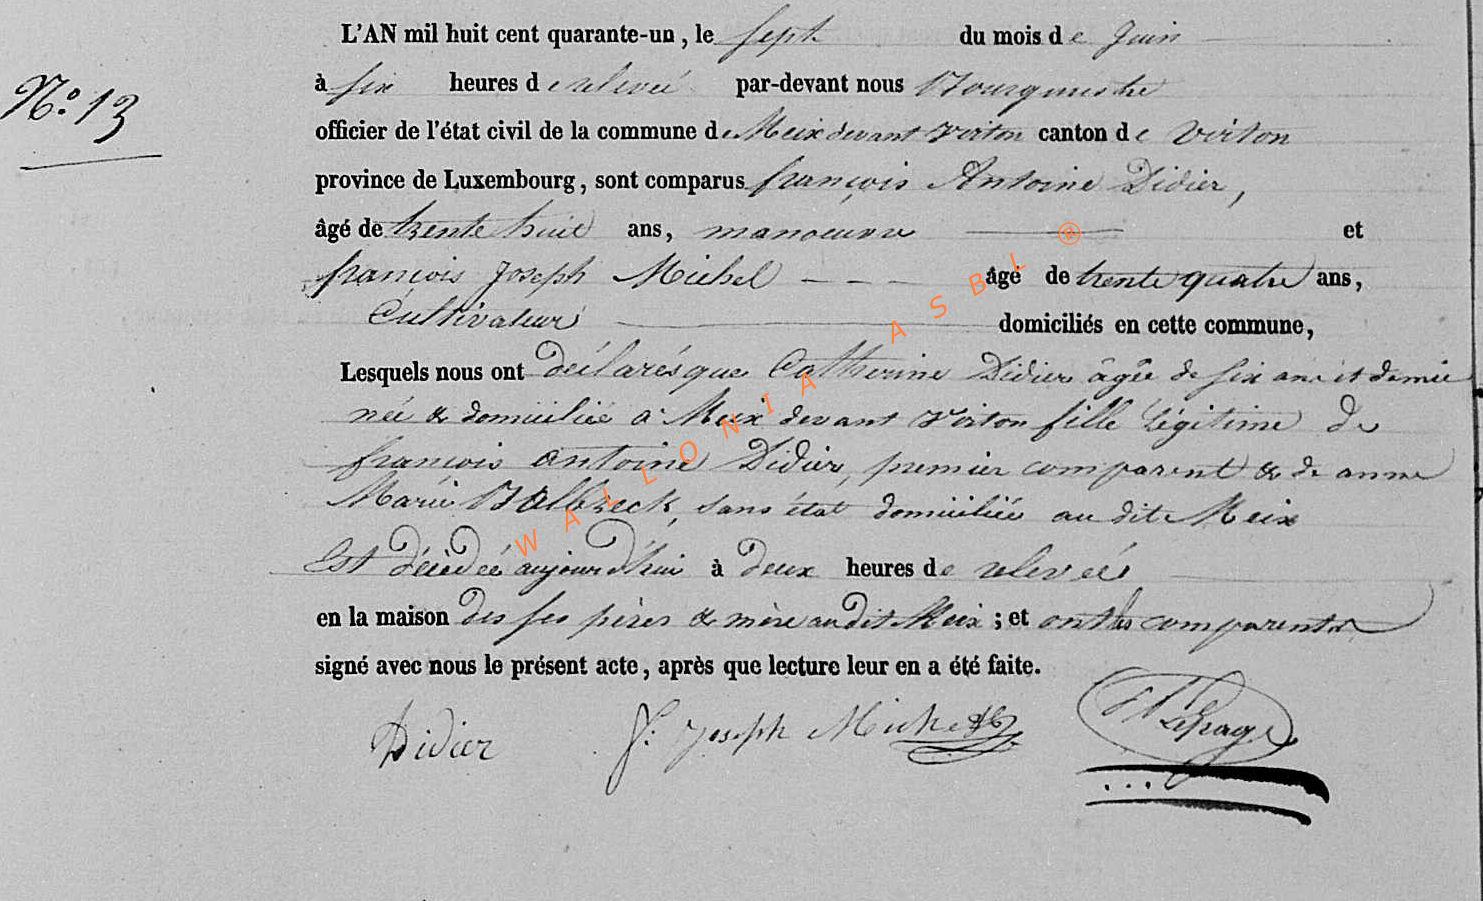 L'AN mil huit cent quarante-un, le sept du mois de Juin
N.º 13
à six heures de relevée par-devant nous Bourgmestre
officier de l'état civil de la commune de Meix devant Virton canton de Virton
province de Luxembourg, sont comparus françois Antoine Didier,
âgé de trente huit ans, manoeuvre et
françois Joseph Michel âgé de trente quatre ans,
Cultivateur domiciliés en cette commune,
Lesquels nous ont déclarés que Catherine Didier âgée de six ans et demie
née & domiciliée à Meix devant Virton fille légitime de
françois antoine Didier, premier comparent & de anne
Marie sans état domiciliée au dit Meix
Est décédée aujourd'hui à deux heures de relevée
en la maison des ses pères & mère au dit Meix ; et ont les comparents
signé avec nous le présent acte, après que lecture leur en a été faite.
Didier f. Joseph Michel Lepage
WALLONIA ASBL ®